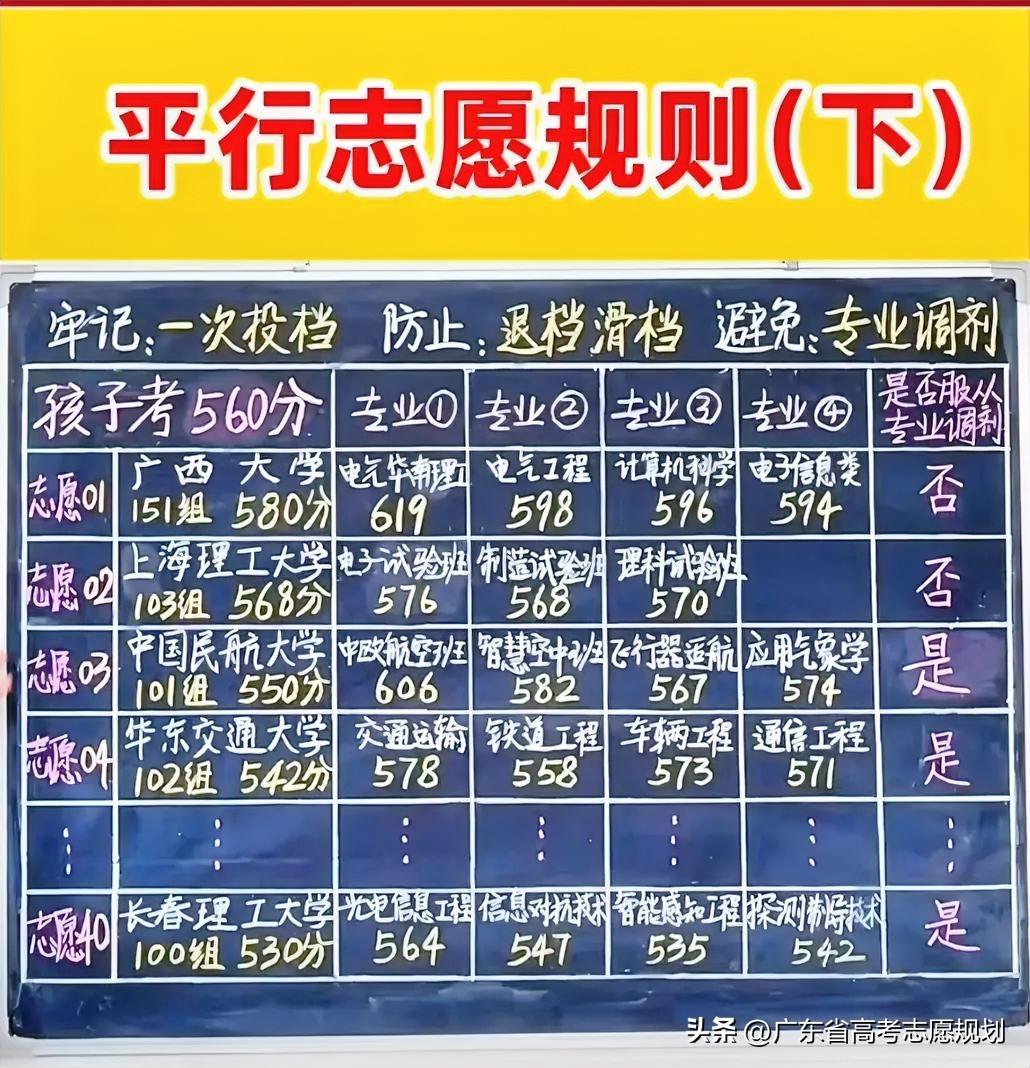 平行志愿规则(下)
牢记:一次投档 防止:退档滑档 避免:专业调剂
孩子考560分 专业① 专业② 专业③ 专业④ 是否服从
专业调剂
志愿01 广西大学 电气华南理工 电气工程 计算机科学 电子信息类 否
151组 580分 619 598 596 594
志愿02 上海理工大学 电子试验班 制造试验班 理科试验班 否
103组 568分 576 568 570
志愿03 中国民航大学 中欧航空班 智慧空中班 飞行器适航 应用气象学 是
101组 550分 606 582 567 574
志愿04 华东交通大学 交通运输 铁道工程 车辆工程 通信工程 是
102组 542分 578 558 573 571
⋮ ⋮ ⋮ ⋮ ⋮ ⋮ ⋮
志愿40 长春理工大学 光电信息工程 信息对抗技术 智能感知工程 探测制导技术 是
100组 530分 564 547 535 542
头条 @广东省高考志愿规划